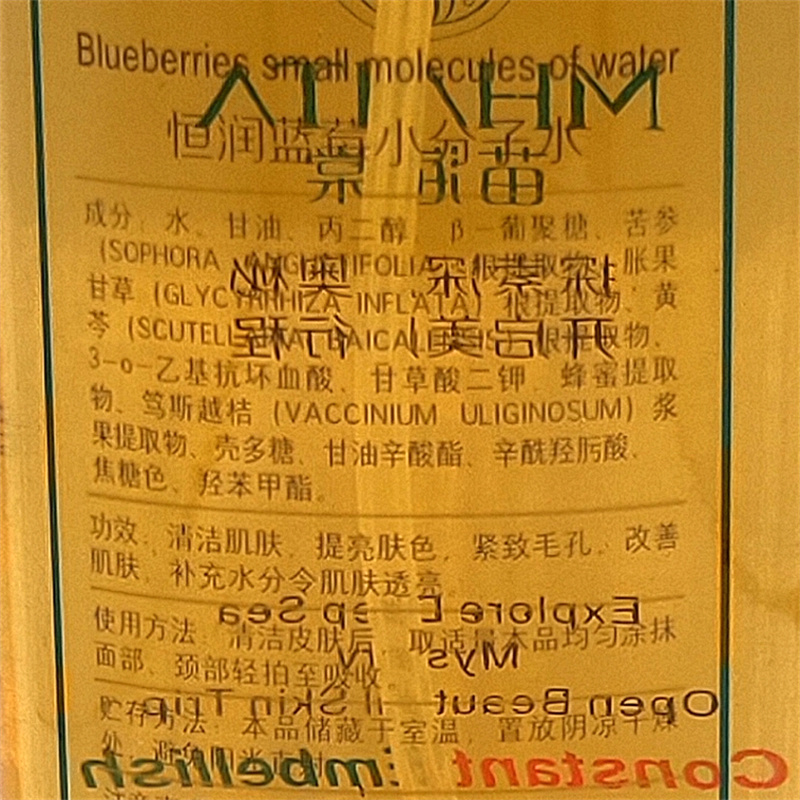 Blueberries small molecules of water
恒润蓝莓小分子水
成分：水、甘油、丙二醇、β-葡聚糖、苦参
(SOPHORA ANGUSTIFOLIA) 根提取物、胀果
甘草 (GLYCYRRHIZA INFLATA) 根提取物、黄
芩 (SCUTELLARIA BAICALENSIS) 根提取物、
3-o-乙基抗坏血酸、甘草酸二钾、蜂蜜提取
物、笃斯越桔 (VACCINIUM ULIGINOSUM) 浆
果提取物、壳多糖、甘油辛酸酯、辛酰羟肟酸、
焦糖色、羟苯甲酯。
功效：清洁肌肤、提亮肤色，紧致毛孔、改善
肌肤、补充水分令肌肤透亮
使用方法：清洁皮肤后，取适量本品均匀涂抹
面部、颈部轻拍至吸收。
贮存方法：本品储藏于室温，置放阴凉干燥
处，避免阳光直射
Explore Deep Sea
Mys
Open Beaut Skin Trip
Constant Embellish